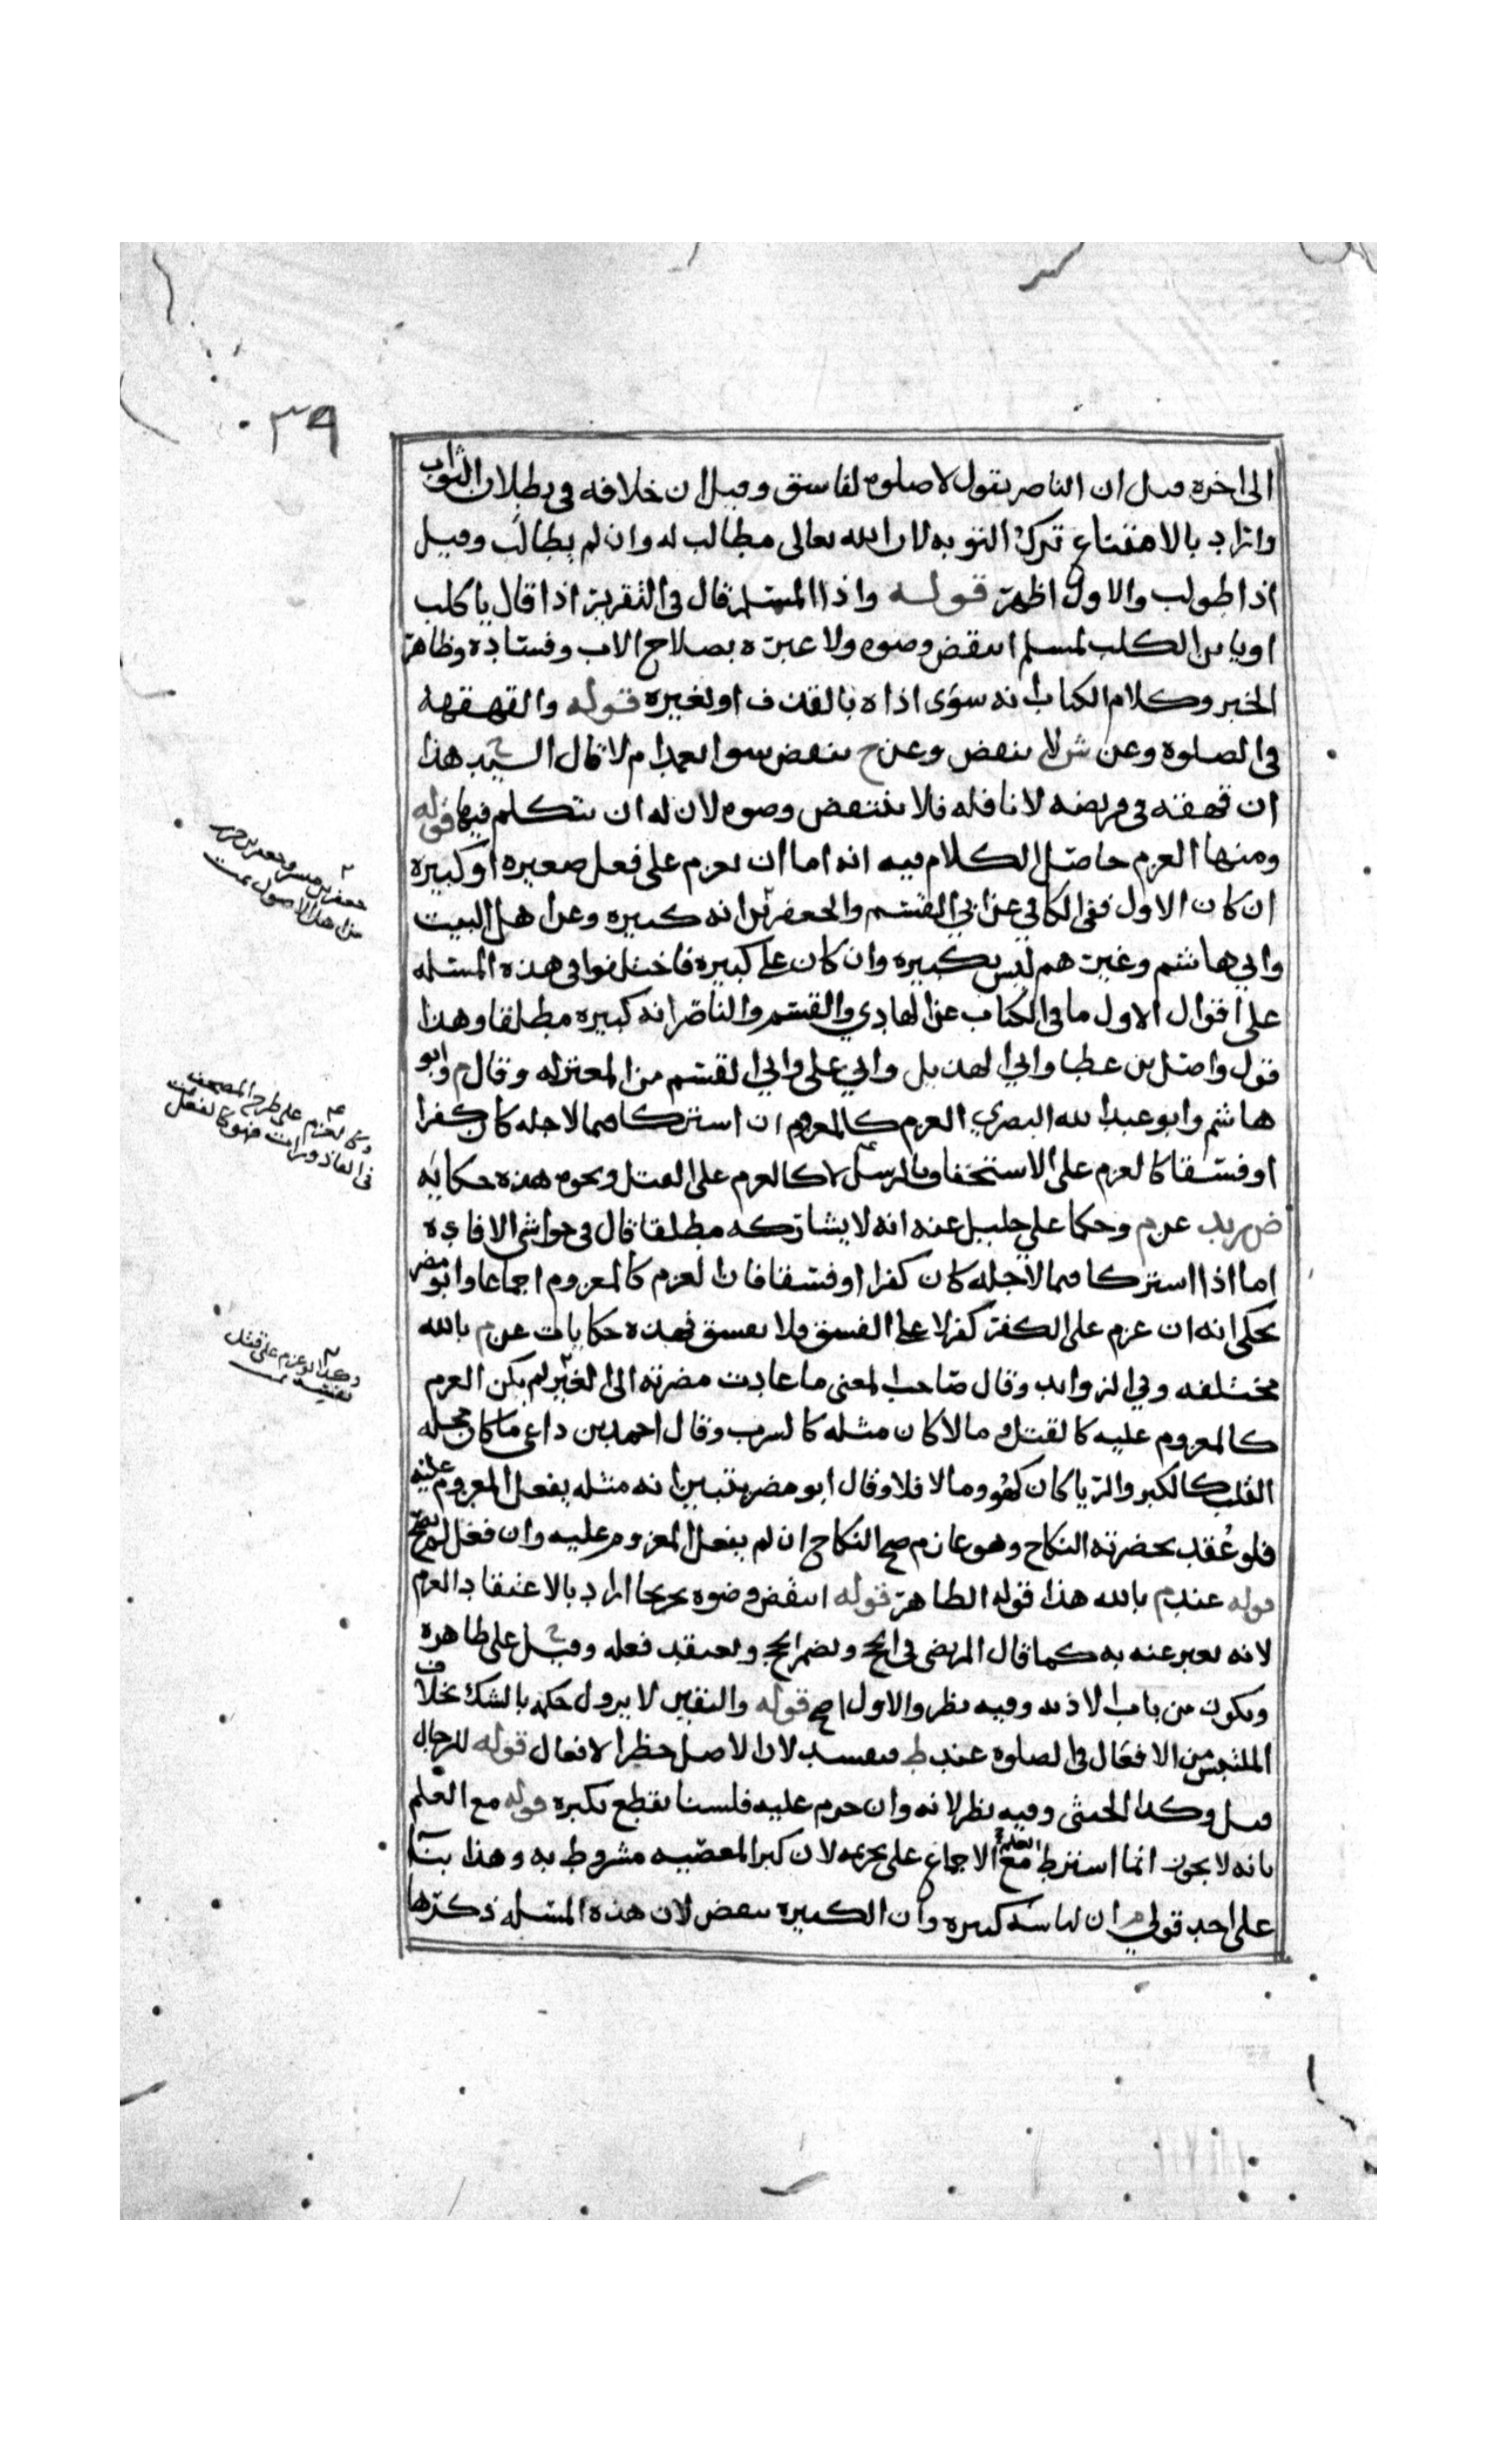 ٣٩
الى اخره قيل ان الناصر يقول لا صلوة لفاسق وقيل ان خلافه في بطلان الثواب
واراد بالامتناع ترك التوبه لان الله تعالى مطالب له وان لم يطالب وقيل
اذا طولب والاول اظهر قوله واذا المسلم قال في التقرير اذا قال يا كلب
او يا بن الكلب لمسلم انتقض وضوه ولا عبرة بصلاح الاب وفساده وظاهر
الخبر وكلام الكتاب انه سوى اذاه بالقذف او لغيره قوله والقهقهه
في الصلوة وعن ش لا ينقض وعن ح ينقض سوا تعمد ام لا قال السيد ح هذا
ان قهقه في فريضه لا نافله فلا ينتقض وضوه لان له ان يتكلم فيها قوله
ومنها العزم حاصل الكلام فيه انه اما ان يعزم على فعل صغيره او كبيره
ان كان الاول ففي الكافي عن ابي القسم والجعفرين انه كبيره وعن اهل البيت
وابي هاشم وغيرهم ليس بكبيره وان كان على كبيره فاختلفوا في هذه المسئله
على اقوال الاول ما في الكتاب عن الهادي والقسم والناصر انه كبيره مطلقا وهذا
قول واصل بن عطا وابي الهذيل وابي علي وابي القسم من المعتزله وقال م وابو
هاشم وابو عبدالله البصري العزم كالمعزوم ان اشتركا فيما لاجله كان كفرا
او فسقا كالعزم على الاستخفاف بالرسل لا كالعزم على القتل ونحوه هذه حكايه
ض زيد عن م وحكا علي خليل عنه انه لا يشاركه مطلقا قال في حواشي الافاده
اما اذا اشتركا فيما لاجله كان كفرا او فسقا فان العزم كالمعزوم اجماعا وابو مضر
يحكي انه ان عزم على الكفر كفر لا على الفسق فلا يفسق فهذه حكايات عن م بالله
مختلفه وفي الزوايد وقال صاحب المعنى ما عادت مضرته الى الغير لم يكن العزم
كالمعزوم عليه كالقتل وما لا كان مثله كالشرب وقال احمد بن داعي ما كان محله
القلب كالكبر والريا كان كهو وما لا فلا وقال ابو مضر يتبين انه مثله بفعل المعزوم عليه
فلو عُقد بحضرته النكاح وهو عازم صح النكاح ان لم يفعل المعزوم عليه وان فعل لم يصح
قوله عند م بالله هذا قوله الظاهر قوله انتقض وضوه تخريجا اراد بالاعتقاد العزم
لانه يعبر عنه به كما قال المرتضى في الحج ويضمر الحج ويعتقد فعله وقيل ح على ظاهره
ويكون من باب الاذيه وفيه نظر والاول اصح قوله واليقين لا يزول حكمه بالشك بخلاف
الملتبس من الافعال في الصلوة عند ط فيفسد لان الاصل حظر الافعال قوله للرجال
قيل وكذا الخنثى وفيه نظر لانه وان حرم عليه فلسنا نقطع بكبره قوله مع العلم
بانه لا يجوز انما اشترط مع العلم الاجماع على تحريمه لان كبر المعصيه مشروط به وهذا بناً
على احد قولي م ان لباسه كبيره وان الكبيره تنقض لان هذه المسئله ذكرها
جعفر بن مبشر وجعفر بن حرب
من اهل الاصول تمت
وكالعزم على طرح المصحف
في القاذورات فهو كالفعل تمت
وكذا لو عزم على قتل
نفسه تمت